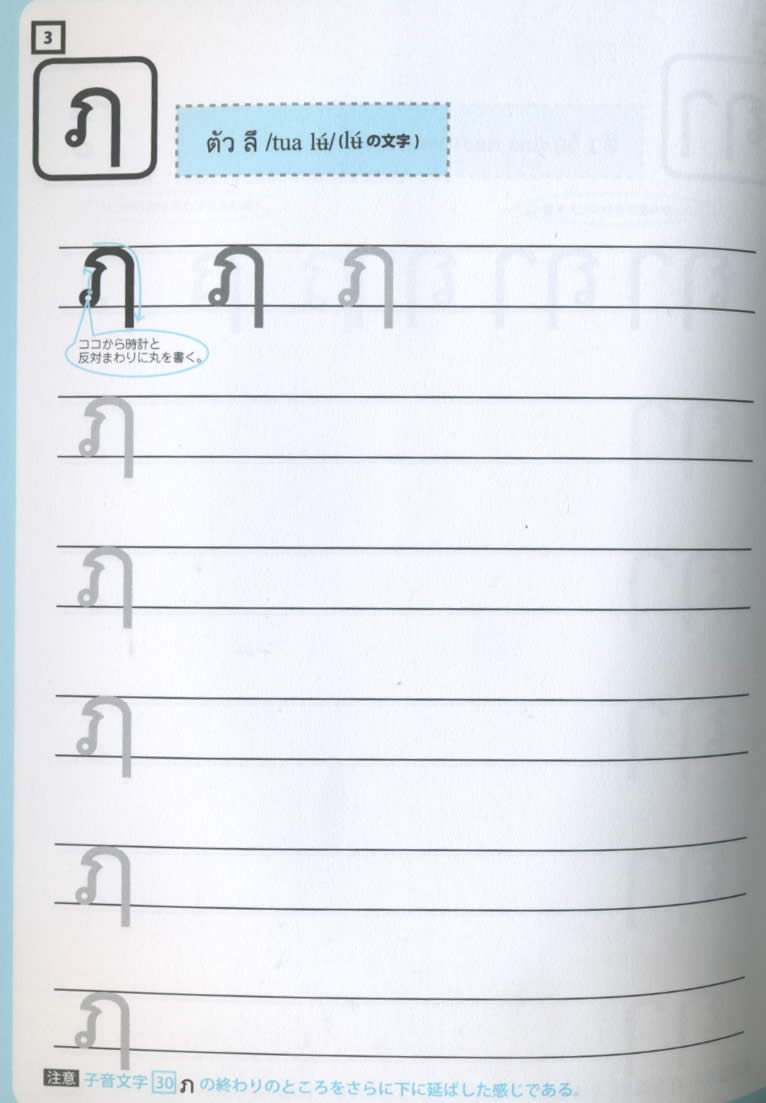 3
ฦ
ตัว ลึ /tua lʉ́/ (lʉ́ の文字)
ฦ ฦ ฦ
ココから時計と
反対まわりに丸を書く。
ฦ
ฦ
ฦ
ฦ
ฦ
注意 子音文字 30 ภ の終わりのところをさらに下に延ばした感じである。